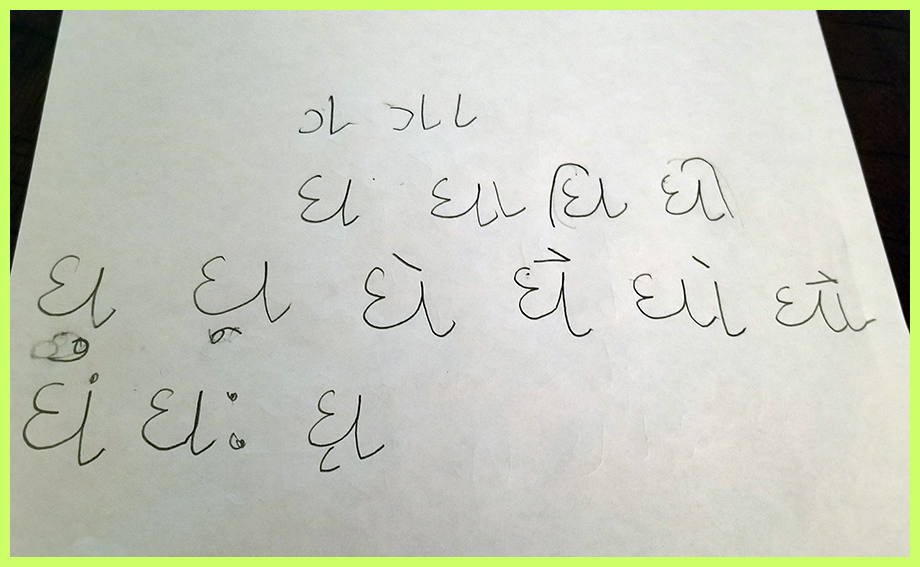 ગ ગા
ઘ ઘા ઘિ ઘી
ઘુ ઘૂ ઘે ઘૈ ઘો ઘૌ
ઘં ઘઃ ઘૃ